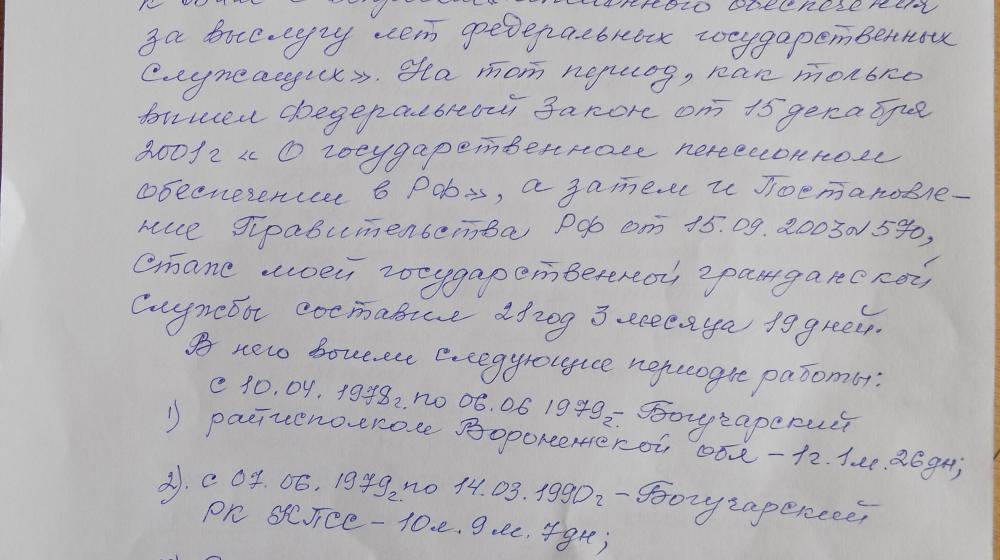 пенсионного обеспечения
за выслугу лет федеральных государственных
служащих». На тот период, как только
вышел Федеральный Закон от 15 декабря
2001г « О государственном пенсионном
обеспечении в РФ», а затем и Постановле-
ние Правительства РФ от 15.09.2003 N 570,
стаж моей государственной гражданской
службы составил 21 год 3 месяца 19 дней.
В него вошли следующие периоды работы:
1) с 10.04. 1978г. по 06.06 1979г - Богучарский
райисполком Воронежской обл - 1г. 1м. 26дн;
2). с 07.06.1979г. по 14.03.1990г - Богучарский
РК КПСС - 10л. 9м. 7дн;